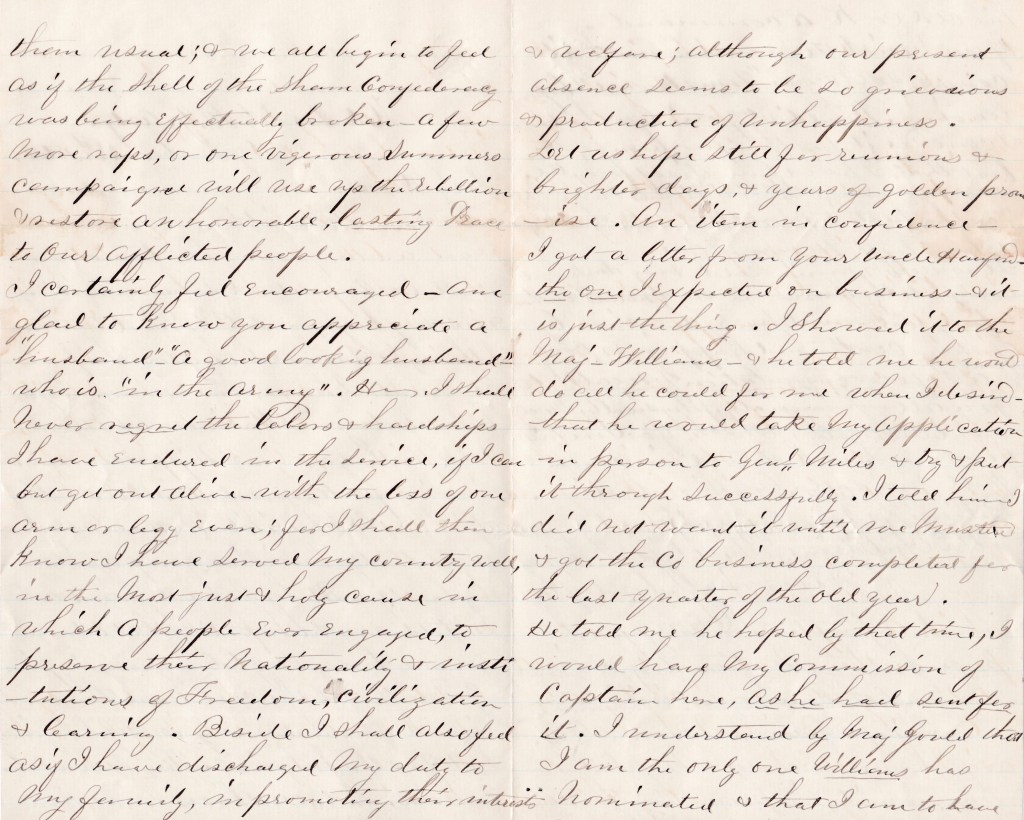 than usual; & we all begin to feel
as if the shell of the sham Confederacy
was being effectually broken – a few
more raps, or one vigerous Summers
campaigne will use up the rebellion
& restore an honorable, lasting Peace
to our afflicted people.
I certainly feel encouraged – am
glad to know you appreciate a
"husband" – "a good looking husband" –
who is "in the army". I shall
never regret the labors & hardships
I have endured in the service, if I can
but get out alive – with the loss of one
arm or legg even; for I shall then
know I have served my country well,
in the most just & holy cause in
which a people ever engaged, to
preserve their Nationality & insti
-tutions of Freedom, civilization
& learning. Beside I shall also feel
as if I have discharged my duty to
my family, in promoting their interests
& welfare; although our present
absence seems to be so grievious
& productive of unhappiness.
Let us hope still for reunions &
brighter days, & years of golden prom
-ise. An item in confidence –
I got a letter from your Uncle
the one I expected on business – & it
is just the thing. I showed it to the
Maj – Williams – & he told me he would
do all he could for me when I desird –
that he would take my application
in person to Genl. Miles & try & put
it through successfully. I told him I
did not want it until we mustered
& got the Co business completed for
the last quarter of the old year.
He told me he hoped by that time, I
would have my Commission of
Captain here, as he had sent for
it. I understand by Maj Gould that
I am the only one Williams has
nominated & that I am to have